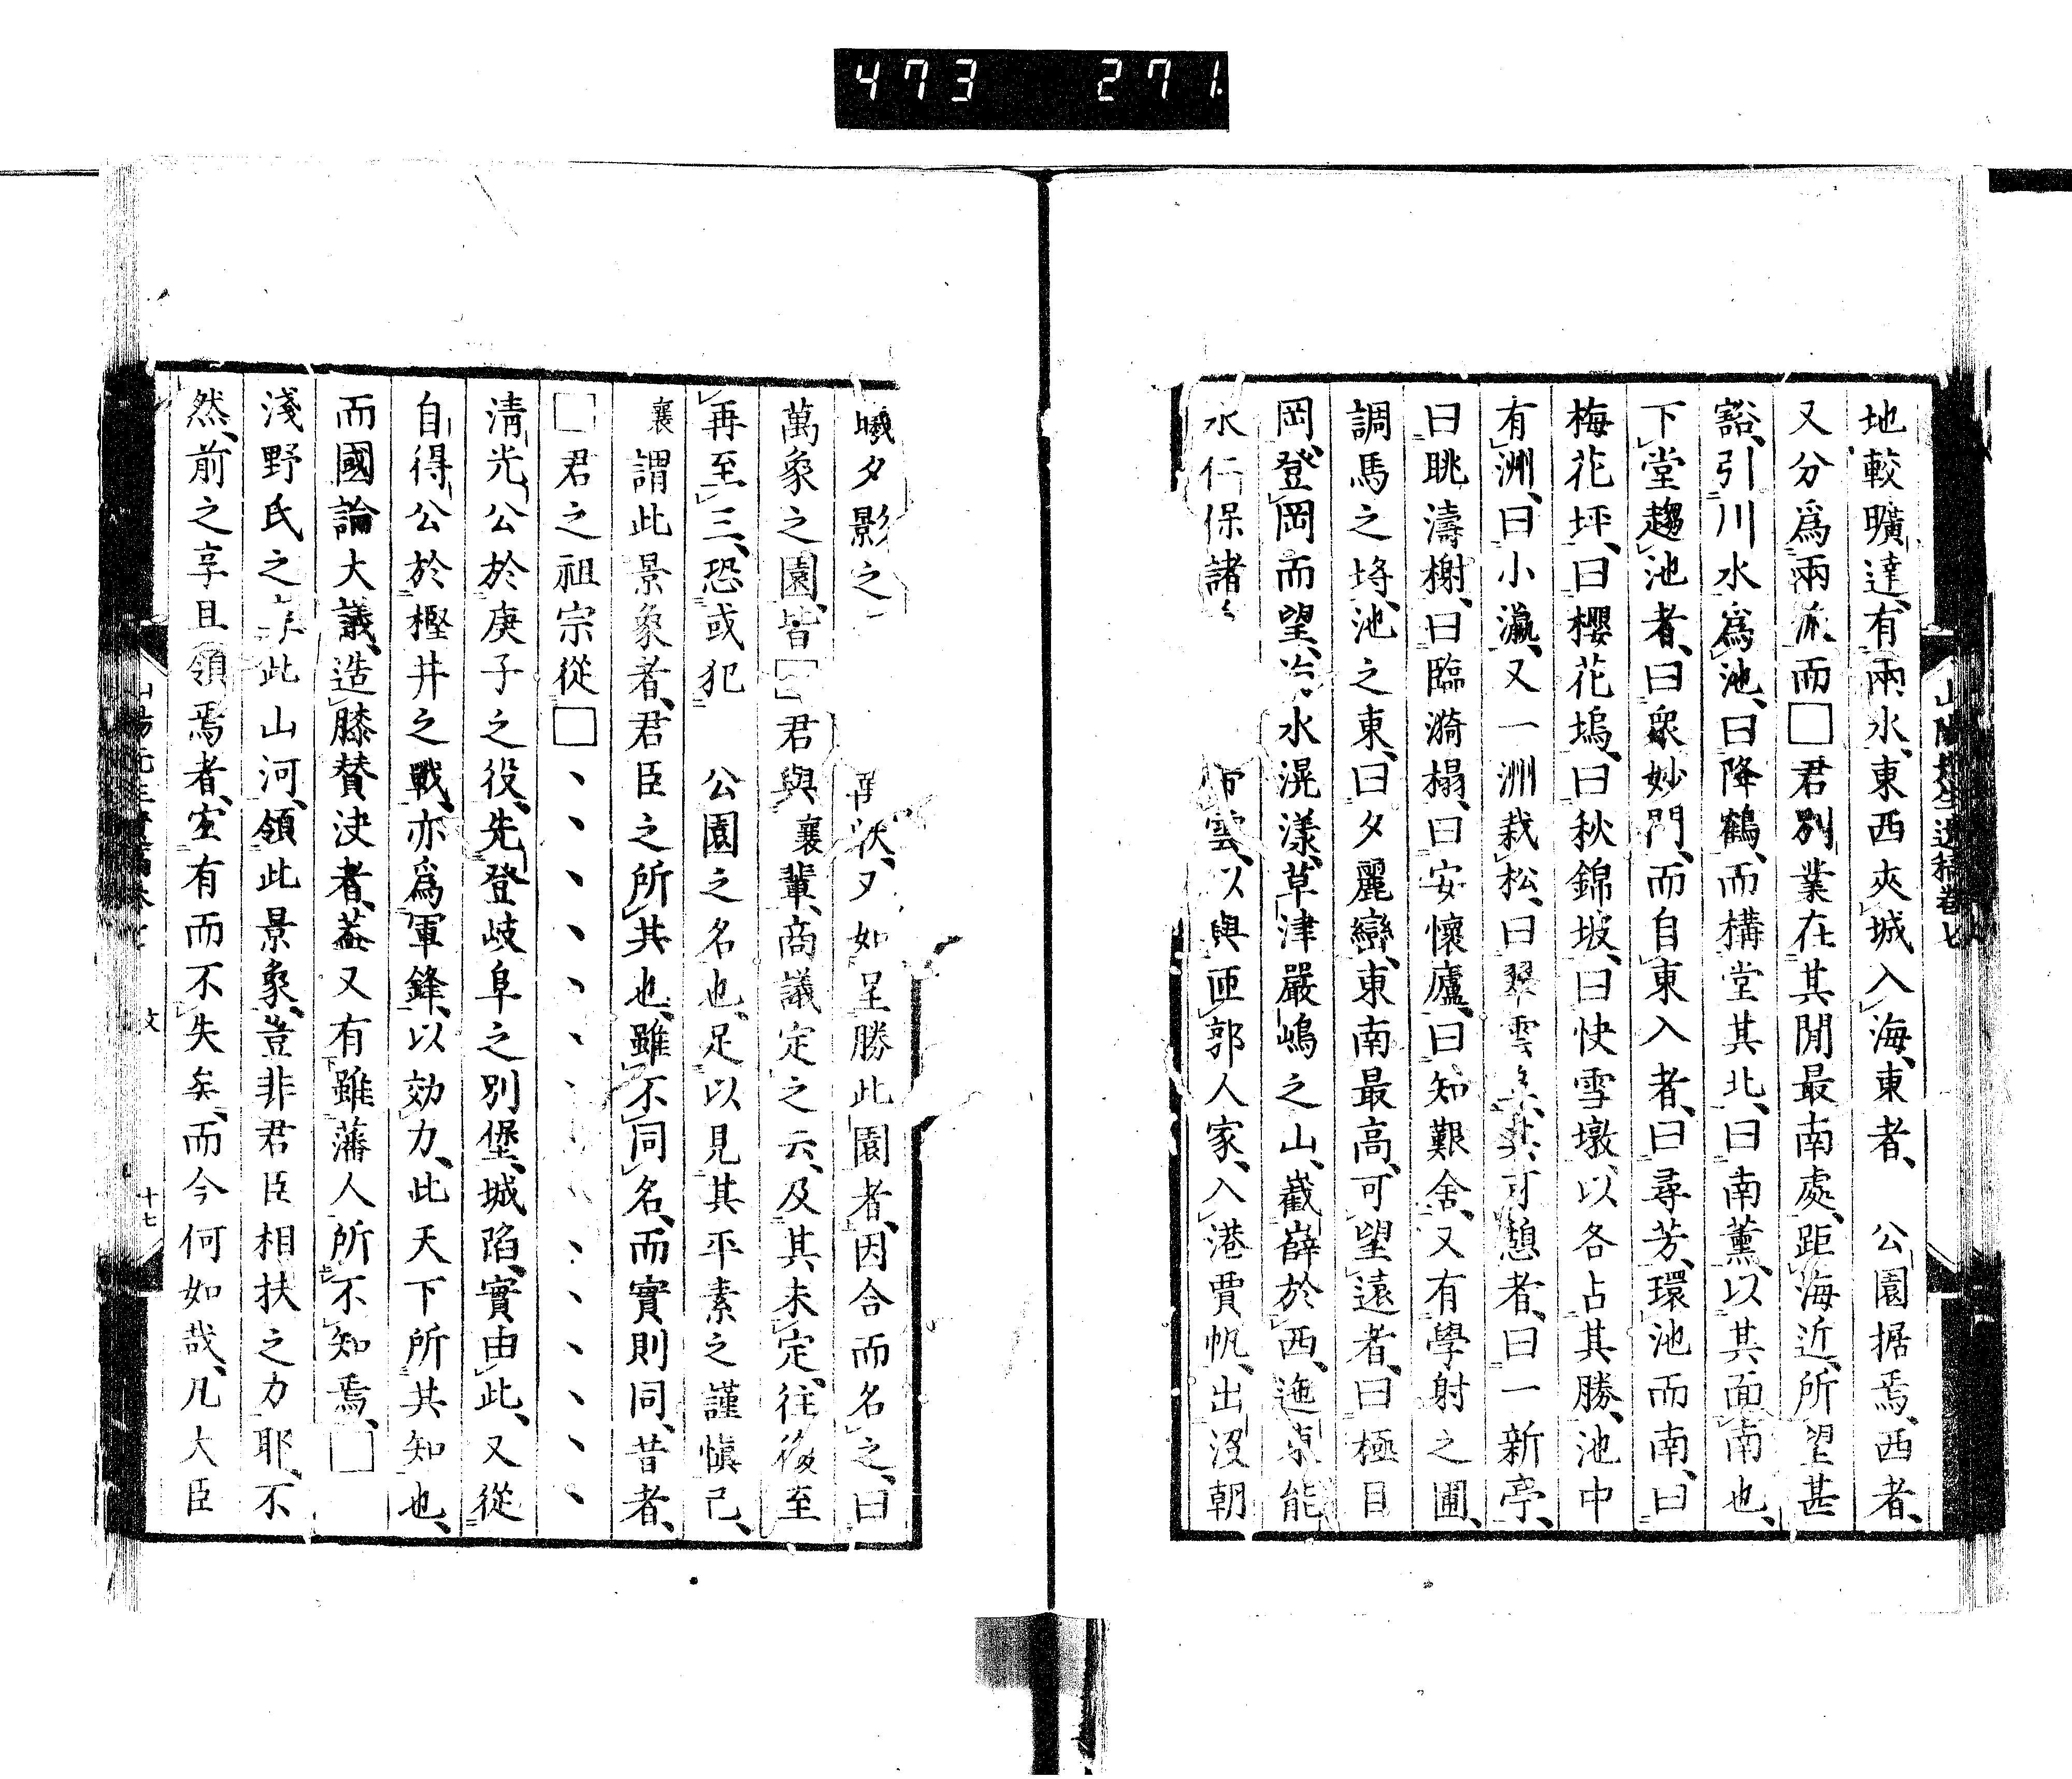 473 271.
地較曠達、有兩水、東西夾城入海、東者、 公園据焉、西者、
又分爲兩派、而□君別業在其間最南處、距海近、所望甚
豁、引川水爲池、曰降鶴、而構堂其北、曰南薰、以其面南也、
下堂趨池者、曰衆妙門、而自東入者、曰尋芳、環池而南、曰
梅花坪、曰櫻花塢、曰秋錦坡、曰快雪墩、以各占其勝、池中
有洲、曰小瀛、又一洲栽松、曰翠雲 其可憩者、曰一新亭、
曰眺濤榭、曰臨漪榻、曰安懷廬、曰知艱舍、又有學射之圃、
調馬之埓、池之東、曰夕麗巒、東南最高、可望遠者、曰極目
岡、登岡而望、 水滉漾、草津嚴嶋之山、巀嶭於西、迤 能
水仁保諸 雲、以與匝郭人家、入港賈帆、出沒朝
曦夕影之 又如呈勝此園者、因合而名之、曰
萬象之園、皆□君與襄輩、商議定之云、及其未定、往復至
再至三、恐或犯 公園之名也、足以見其平素之謹愼已、
襄謂此景象者、君臣之所共也、雖不同名、而實則同、昔者、
□君之祖宗從□、、、、、、、、、、、、、、、
清光公於庚子之役、先登岐阜之別堡、城陷、實由此、又從
自得公於樫井之戰、亦爲軍鋒、以効力、此天下所共知也、
而國論大議、造膝賛決者、葢又有雖藩人所不知焉、□
淺野氏之 此山河、領此景象、豈非君臣相扶之力耶、不
然、前之享且領焉者、室有而不失矣、而今何如哉、凡大臣
文
十七